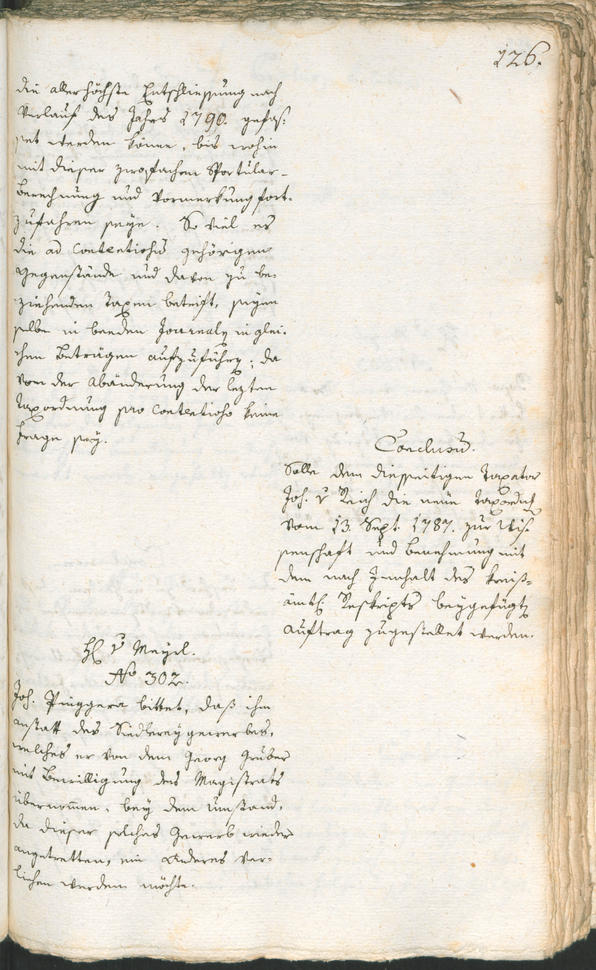 126.
die allerhöchste Entschliessung nach
Verlauf des Jahrs 1790. gefas-
set werden könne, bis wohin
mit dieser zweyfachen Sportular-
berechnung und Vormerkung fort-
zufahren seye. So viel es
die ad Contentiosis gehörigen
Gegenstände und davon zu be-
ziehenden Taxen betrift, seyen
selbe in beeden Journaly in glei-
chen Beträgen aufzuführen, da
von der Abänderung der lezten
Taxordnung pro Contentioso keine
Frage sey.
Conclusum.
Solle dem diesseitigen Taxator
Joh. v Reich die neue Taxordng
vom 13. Sept. 1787. zur Wis-
senschaft und Benehmung mit
dem nach Innhalt des kreis-
ämtl. Reskripts beygefügten
Auftrag zugestellet werden.
H. v Mayrl.
No 302.
Joh. Pinggera bittet, daß ihm
anstatt des Siedlereygewerbes,
welches er von dem Georg Gruber
mit Bewilligung des Magistrats
übernommen, bey dem Umstand,
da dieser solches Gewerb wieder
angetretten, ein anderes ver-
liehen werden möchte.